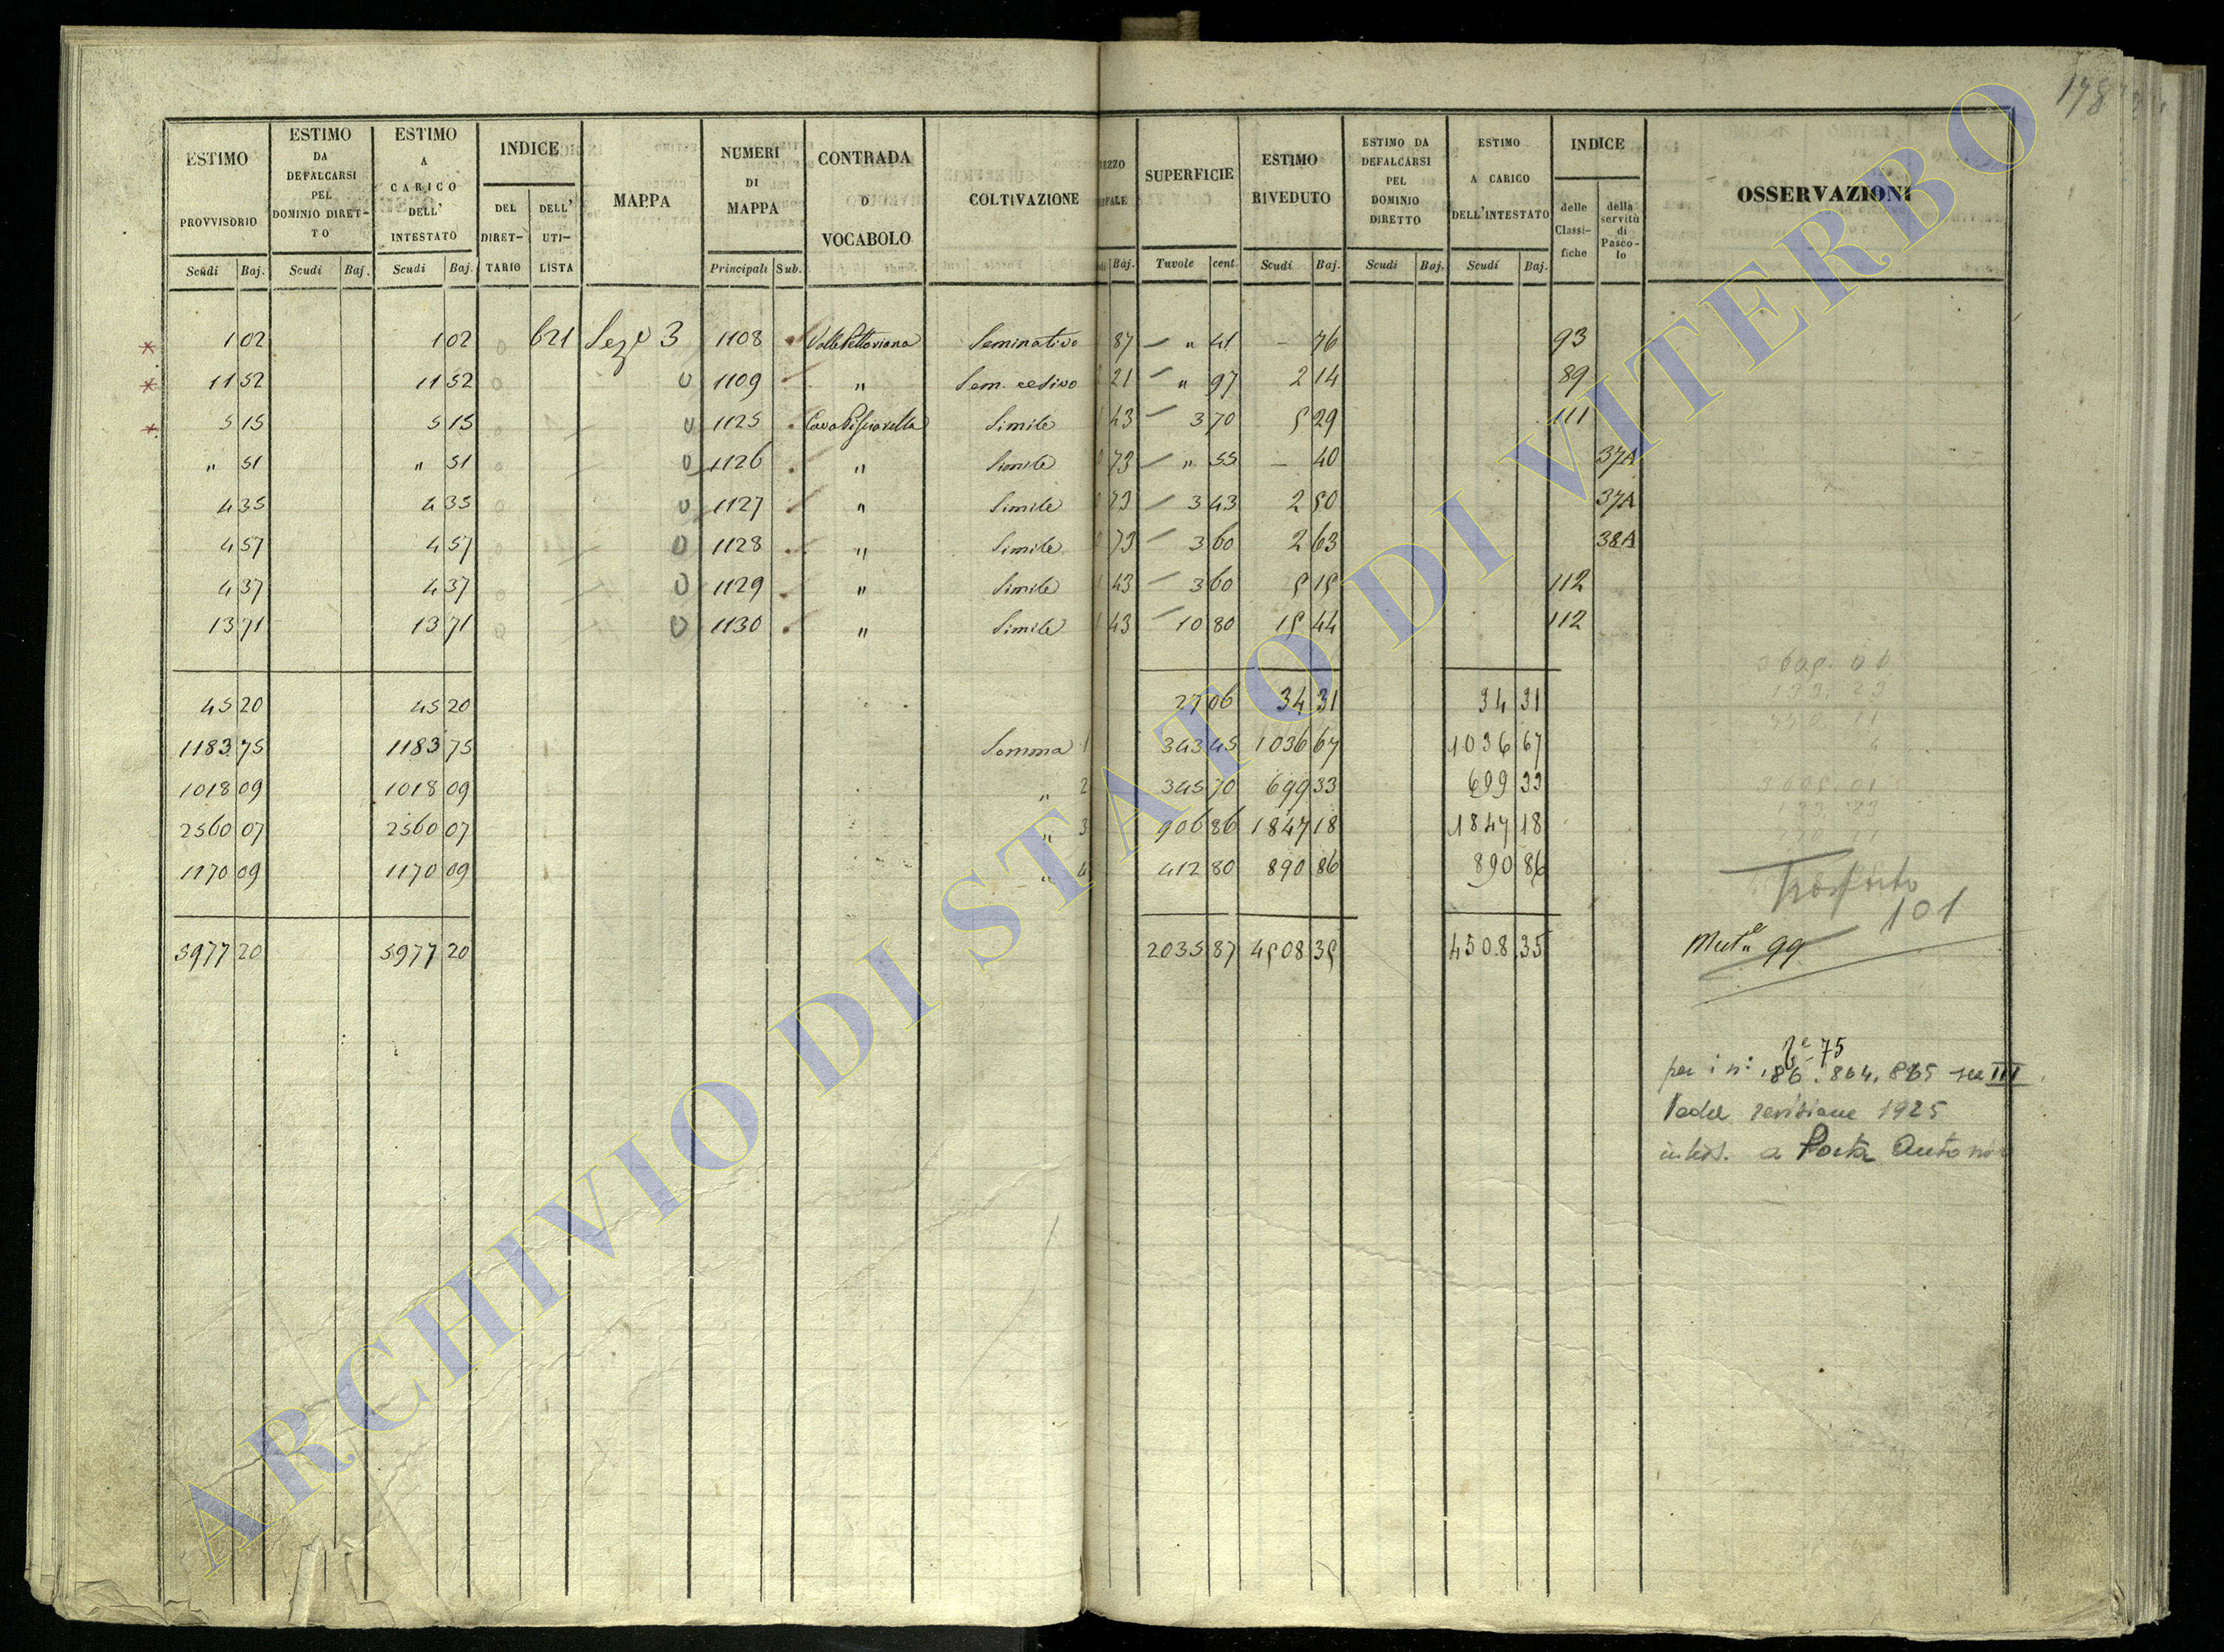 178
ESTIMO PROVVISORIO | ESTIMO DA DEFALCARSI PEL DOMINIO DIRET-TO | ESTIMO A CARICO DELL' INTESTATO | INDICE | MAPPA | NUMERI DI MAPPA | CONTRADA O VOCABOLO | COLTIVAZIONE | SUPERFICIE | ESTIMO RIVEDUTO | ESTIMO DA DEFALCARSI PEL DOMINIO DIRETTO | ESTIMO A CARICO DELL'INTESTATO | INDICE | OSSERVAZIONI
DEL DIRET-TARIO | DELL' UTI-LISTA | delle Classi-fiche | della servitù di Pasco-lo
Scudi | Baj. | Scudi | Baj. | Scudi | Baj. | Principali | Sub. | Baj. | Tavole | cent | Scudi | Baj. | Scudi | Baj. | Scudi | Baj.
1 02 | 1 02 | 621 | Seze 3 | 1108 | Seminativo | 87 | " 41 | – 76 | 93
11 52 | 11 52 | 1109 | " | Sem. cedivo | 21 | " 97 | 2 14 | 89
5 15 | 5 15 | 1125 | Simile | 43 | 3 70 | 5 29 | 111
" 51 | " 51 | 1126 | " | Simile | 73 | " 55 | – 40 | 37A
4 35 | 4 35 | 1127 | " | Simile | 73 | 3 43 | 2 50 | 37A
4 57 | 4 57 | 1128 | " | Simile | 73 | 3 60 | 2 63 | 38A
4 37 | 4 37 | 1129 | " | Simile | 43 | 3 60 | 5 15 | 112
13 71 | 13 71 | 1130 | " | Simile | 43 | 10 80 | 15 44 | 112
45 20 | 45 20 | 27 06 | 34 31 | 34 31
1183 75 | 1183 75 | Somma 1 | 343 45 | 1036 67 | 1036 67
1018 09 | 1018 09 | " 2 | 345 70 | 699 33 | 699 33
2560 07 | 2560 07 | " 3 | 906 86 | 1847 18 | 1847 18
1170 09 | 1170 09 | " 4 | 412 80 | 890 86 | 890 86
5977 20 | 5977 20 | 2035 87 | 4508 35 | 4508.35
Trasporto
101
99
75
per i n:i 86. 864. 865 sez III
revisione 1925
a Porta Antonio
ARCHIVIO DI STATO DI VITERBO